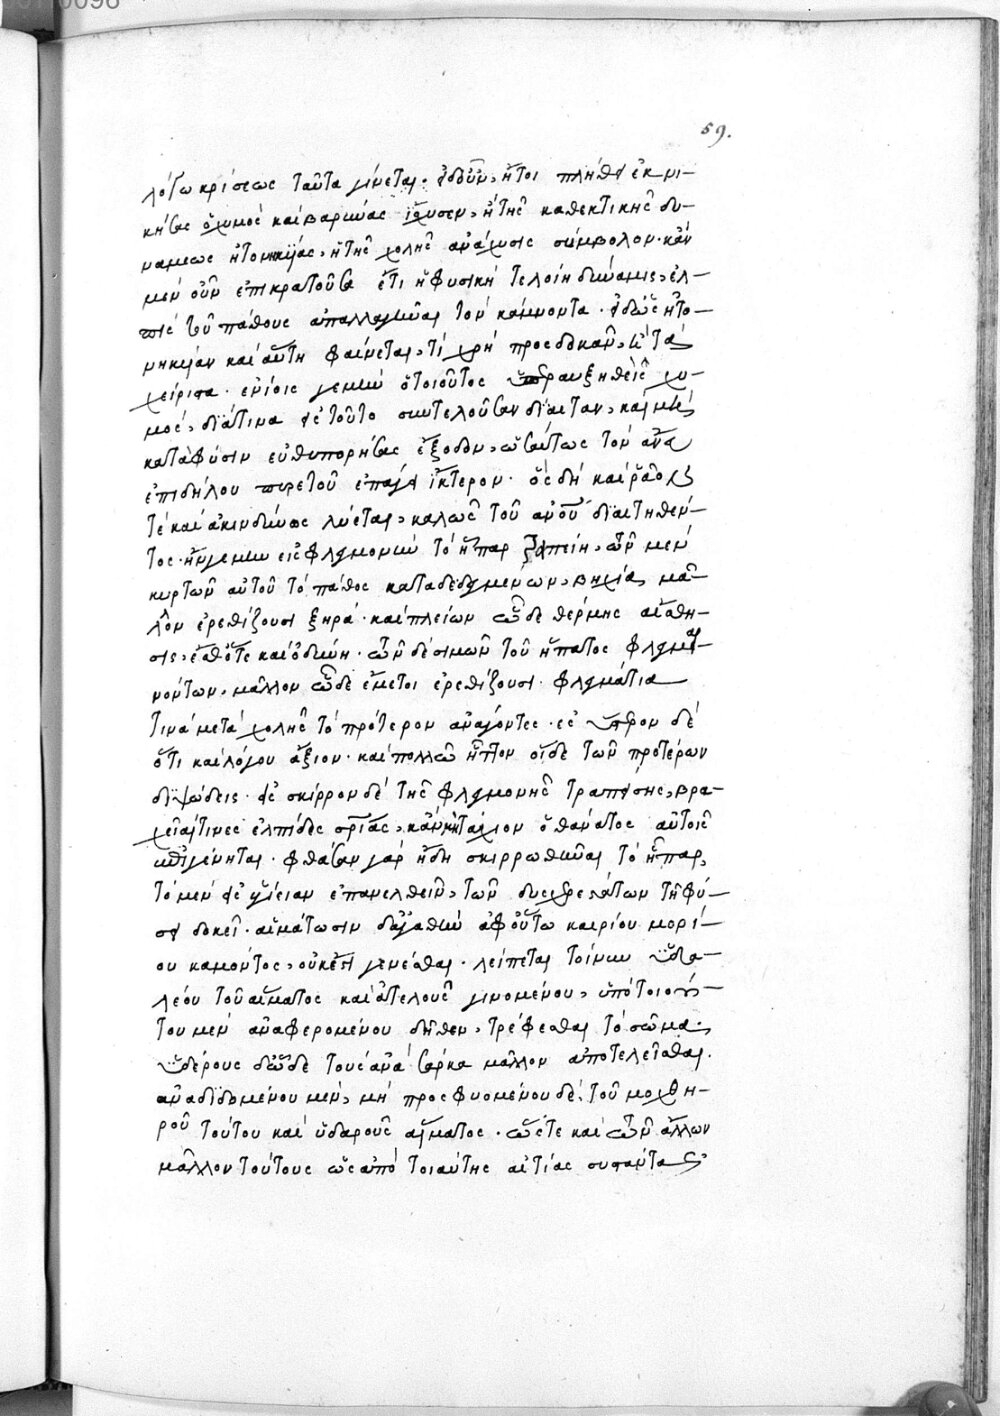 59.
λόγω κρίσεως ταῦτα γίνεται· ἤτοι πλήθει ἐκνι-
κήσας ὁ χυμὸς καὶ βαρύνας ἴσχυσεν, ἢ τῆς καθεκτικῆς δυ-
νάμεως ἀτονησάσης, ἢ τῆς χολῆς ἀνάχυσις σύμβολον· κἂν
μὲν οὖν ἐπικρατοῦσα ἔτι ἡ φυσικὴ τελοίη δύναμις, ἐλ-
πὶς τοῦ πάθους ἀπαλλαγῆναι τὸν κάμνοντα· εἰ δὲ
καὶ αὕτη φαίνεται, τί χρὴ προσδοκᾶν, ἢ τὰ
χείριστα· ἐνίοις γεμὴν ὁ τοιοῦτος ὑπεραυξηθεὶς χυ-
μὸς, διάτινα εἰς τοῦτο συντελοῦσαν δίαιταν, καὶ μὴ
κατὰ φύσιν εὐθυπορήσας ἔξοδον, ὡσαύτως τὸν ἄνευ
ἐπιδήλου πυρετοῦ ἐπάγει ἴκτερον· ὃς δὴ καὶ ῥᾷον
τὲ καὶ ἀκινδύνως λύεται, καλῶς τοῦ ἀνοῦ διαιτηθέν-
τος· ἢν γεμὴν εἰς φλεγμονὴν τὸ ἧπαρ τραπείη, τῶν μὲν
κυρτῶν αὐτοῦ τὸ πάθος καταδεδεγμένων, βηχία μᾶλ-
λον ἐρεθίζουσι ξηρά· καὶ πλείων τῶνδε θέρμης αἴσθη-
σις, ἔσθ' ὅτε καὶ ὀδύνη· τῶν δὲ σιμῶν τοῦ ἥπατος φλεγμαι-
νόντων, μᾶλλον τῶνδε ἔμετοι ἐρεθίζουσι· φλεγμάτια
τινὰ μετὰ χολῆς τὸ πρότερον ἀνάγοντες· ἐς ὕστερον δὲ
ὅτι καὶ λόγου ἄξιον· καὶ πολλῶ ἧττον οἵδε τῶν προτέρων
διψώδεις· εἰς σκίρρον δὲ τῆς φλεγμονῆς τραπείσης, βρα-
χεῖαί τινες ἐλπίδες σωτηρίας, κἂν μὴ τάχιον ὁ θάνατος αὐτοῖς
ἐπιγένηται· φθάσαν γὰρ ἤδη σκιρρωθῆναι τὸ ἧπαρ,
τὸ μὲν εἰς ὑγίειαν ἐπανελθεῖν, τῶν δυσχερεστάτων τῆ φύ-
σει δοκεῖ· αἱμάτωσιν δ' ἀγαθὴν ἀφ' οὕτω καιρίου μορί-
ου καμόντος, οὐκέτι γενέσθαι· λείπεται τοίνυν ὑδα-
λέου τοῦ αἵματος καὶ ἀτελοῦς γινομένου, ὑπὸ τοιού-
του μὲν ἀναφερομένου δῆθεν, τρέφεσθαι τὸ σῶμα·
ὑδέρους δὲ ὧδε τοὺς ἀνὰ σάρκα μᾶλλον ἀποτελεῖσθαι.
ἀναδιδομένου μὲν, μὴ προσφυομένου δὲ, τοῦ μοχθη-
ροῦ τούτου καὶ ὑδαροῦς αἵματος· ὥστε καὶ τῶν ἄλλων
μᾶλλον τούτους ὡς ἀπὸ τοιαύτης αἰτίας συστάντας